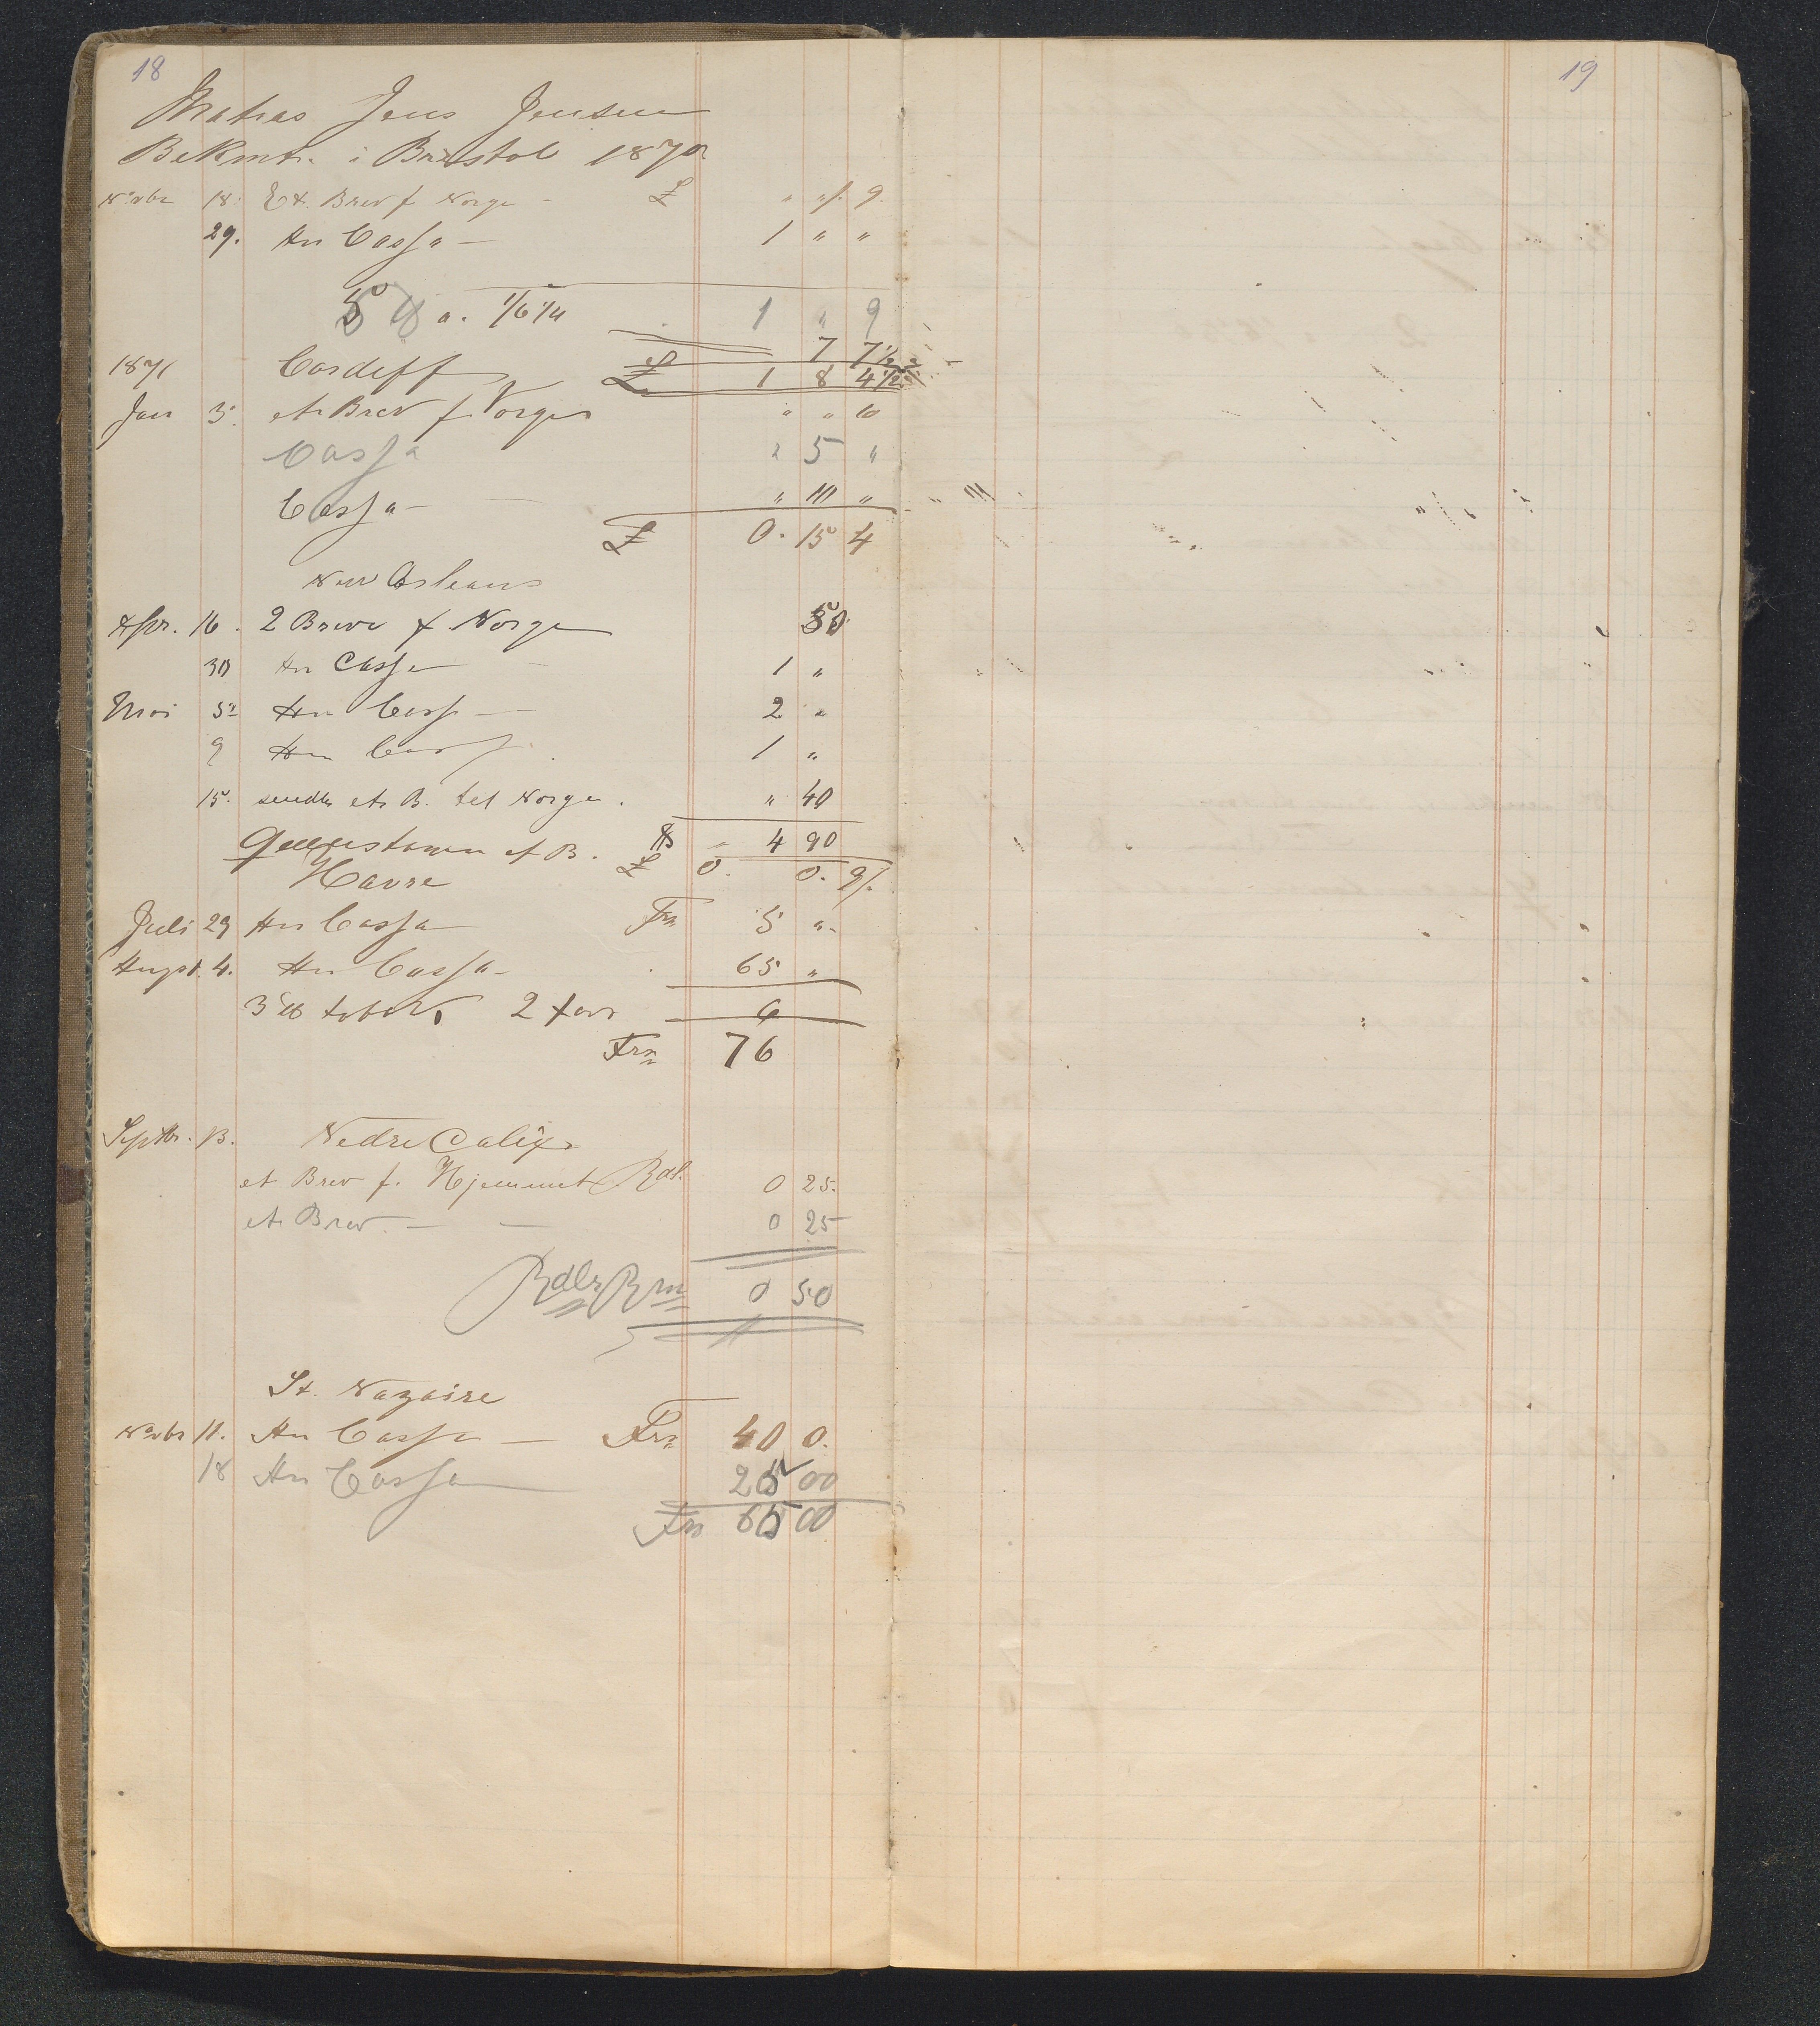 18
19
Matias Jens Jensen
Bekmt. i Bristol 1870
Novbr 18. Et. Brev f Norge - £ " "/. 9.
29. An Cassa - 1 " "
5 ℔ a. 1/6 1/4 1 " 9
7 7 1/2
1871 Cardeff £ 1 8 4 1/2
Jan 3. et Brev f Norge " " 10
Cassa " 5 "
Cassa - " 10 "
£ 0. 15 4
New Orleans
Apr. 16. 2 Breve f Norge 50
30 An Cassa 1 "
Mai 5 An Cassa - 2 "
9 An Cassa 1 "
15. sendt et B. tel Norge. " 40
Queenstown et B. $ " 4 90
£ 0. 0. 9/.
Havre
Juli 29 An Cassa Frn 5 "
August. 4. An Cassa - 65 "
3 ℔ tobak 2 fr 6
Frn 76
Septbr. 13. Nedre Calix
et Brev f. Hjemmet Rdl. 0 25.
et Brev - - 0 25
Rdlr Rm 0 50
St. Nazaire
Novbr 11. An Cassa - Frn 40 0.
18 An Cassa 25 00
Frn 65 00